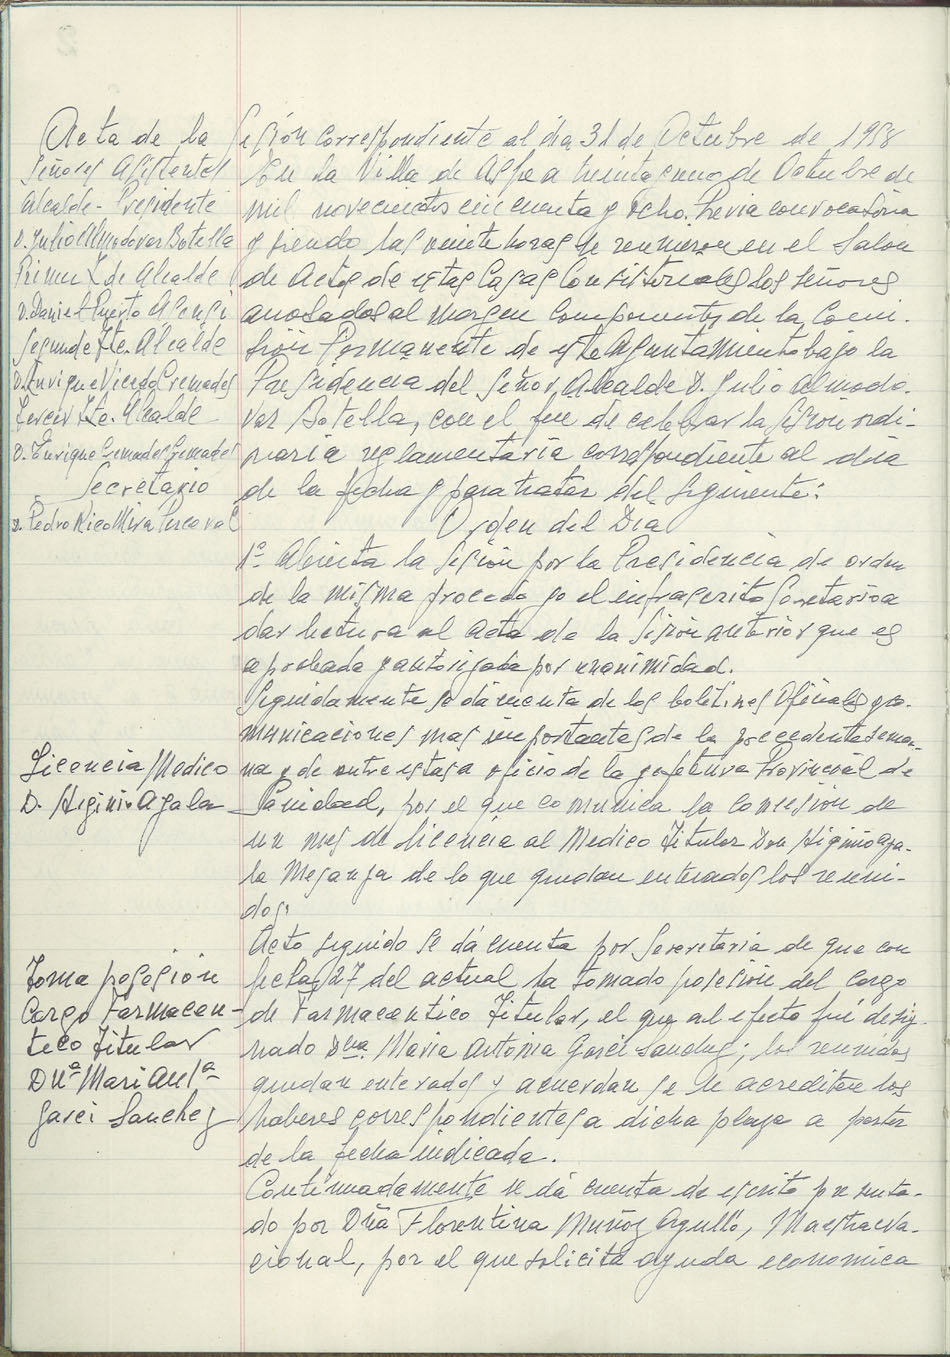 Acta de la Sesión correspondiente al dia 31 de Octubre de 1958
Señores Asistentes
Alcalde-Presidente
D. Julio Almodovar Botella
Primer T. de Alcalde
D. Daniel Puerto Asensi
Segundo Tte. Alcalde
D. Enrique Viedo Cremades
Tercer Tte. Alcalde
D. Enrique Cremades Cremades
Secretario
D. Pedro Rico Mira Perceval
En la Villa de Aspe a treinta y uno de Octubre de
mil novecientos cincuenta y ocho. Previa convocatoria
y siendo las veinte horas se reunieron en el Salon
de Actos de estas Casas Consistoriales los señores
anotados al margen componentes de la Comi-
sión Permanente de este Ayuntamiento bajo la
Presidencia del Señor Alcalde D. Julio Almodo-
var Botella, con el fin de celebrar la sesión ordi-
naria reglamentaria correspondiente al dia
de la fecha y para tratar del siguiente:
Orden del Dia
1º Abierta la sesión por la Presidencia de orden
de la misma procedo yo el infrascrito Secretario a
dar lectura al acta de la sesión anterior que es
aprobada y autorizada por unanimidad.
Seguidamente se dá cuenta de los boletines Oficiales y co-
municaciones mas importantes de la precedente sema-
na y de entre estas a oficio de la Jefatura Provincial de
Sanidad, por el que comunica la concesión de
un mes de licencia al Medico Titular Don Higinio Aya-
la Mesanza de lo que quedan enterados los reuni-
dos.
Licencia Medico
D. Higinio Ayala
Acto seguido se dá cuenta por Secretaria de que con
fecha 27 del actual ha tomado posesión del cargo
de Farmaceutico Titular, el que al efecto fué desig-
nado Dña. Maria Antonia Garci Sanchez; los reunidos
quedan enterados y acuerdan se le acrediten los
haberes correspondientes a dicha plaza a partir
de la fecha indicada.
Toma posesión
Cargo Farmaceu-
tico Titular
Dnª Mari Antª
Garci Sanchez
Continuadamente se dá cuenta de escrito presenta-
do por Dña Florentina Muñoz Agulló, Maestra Na-
cional, por el que solicita ayuda economica